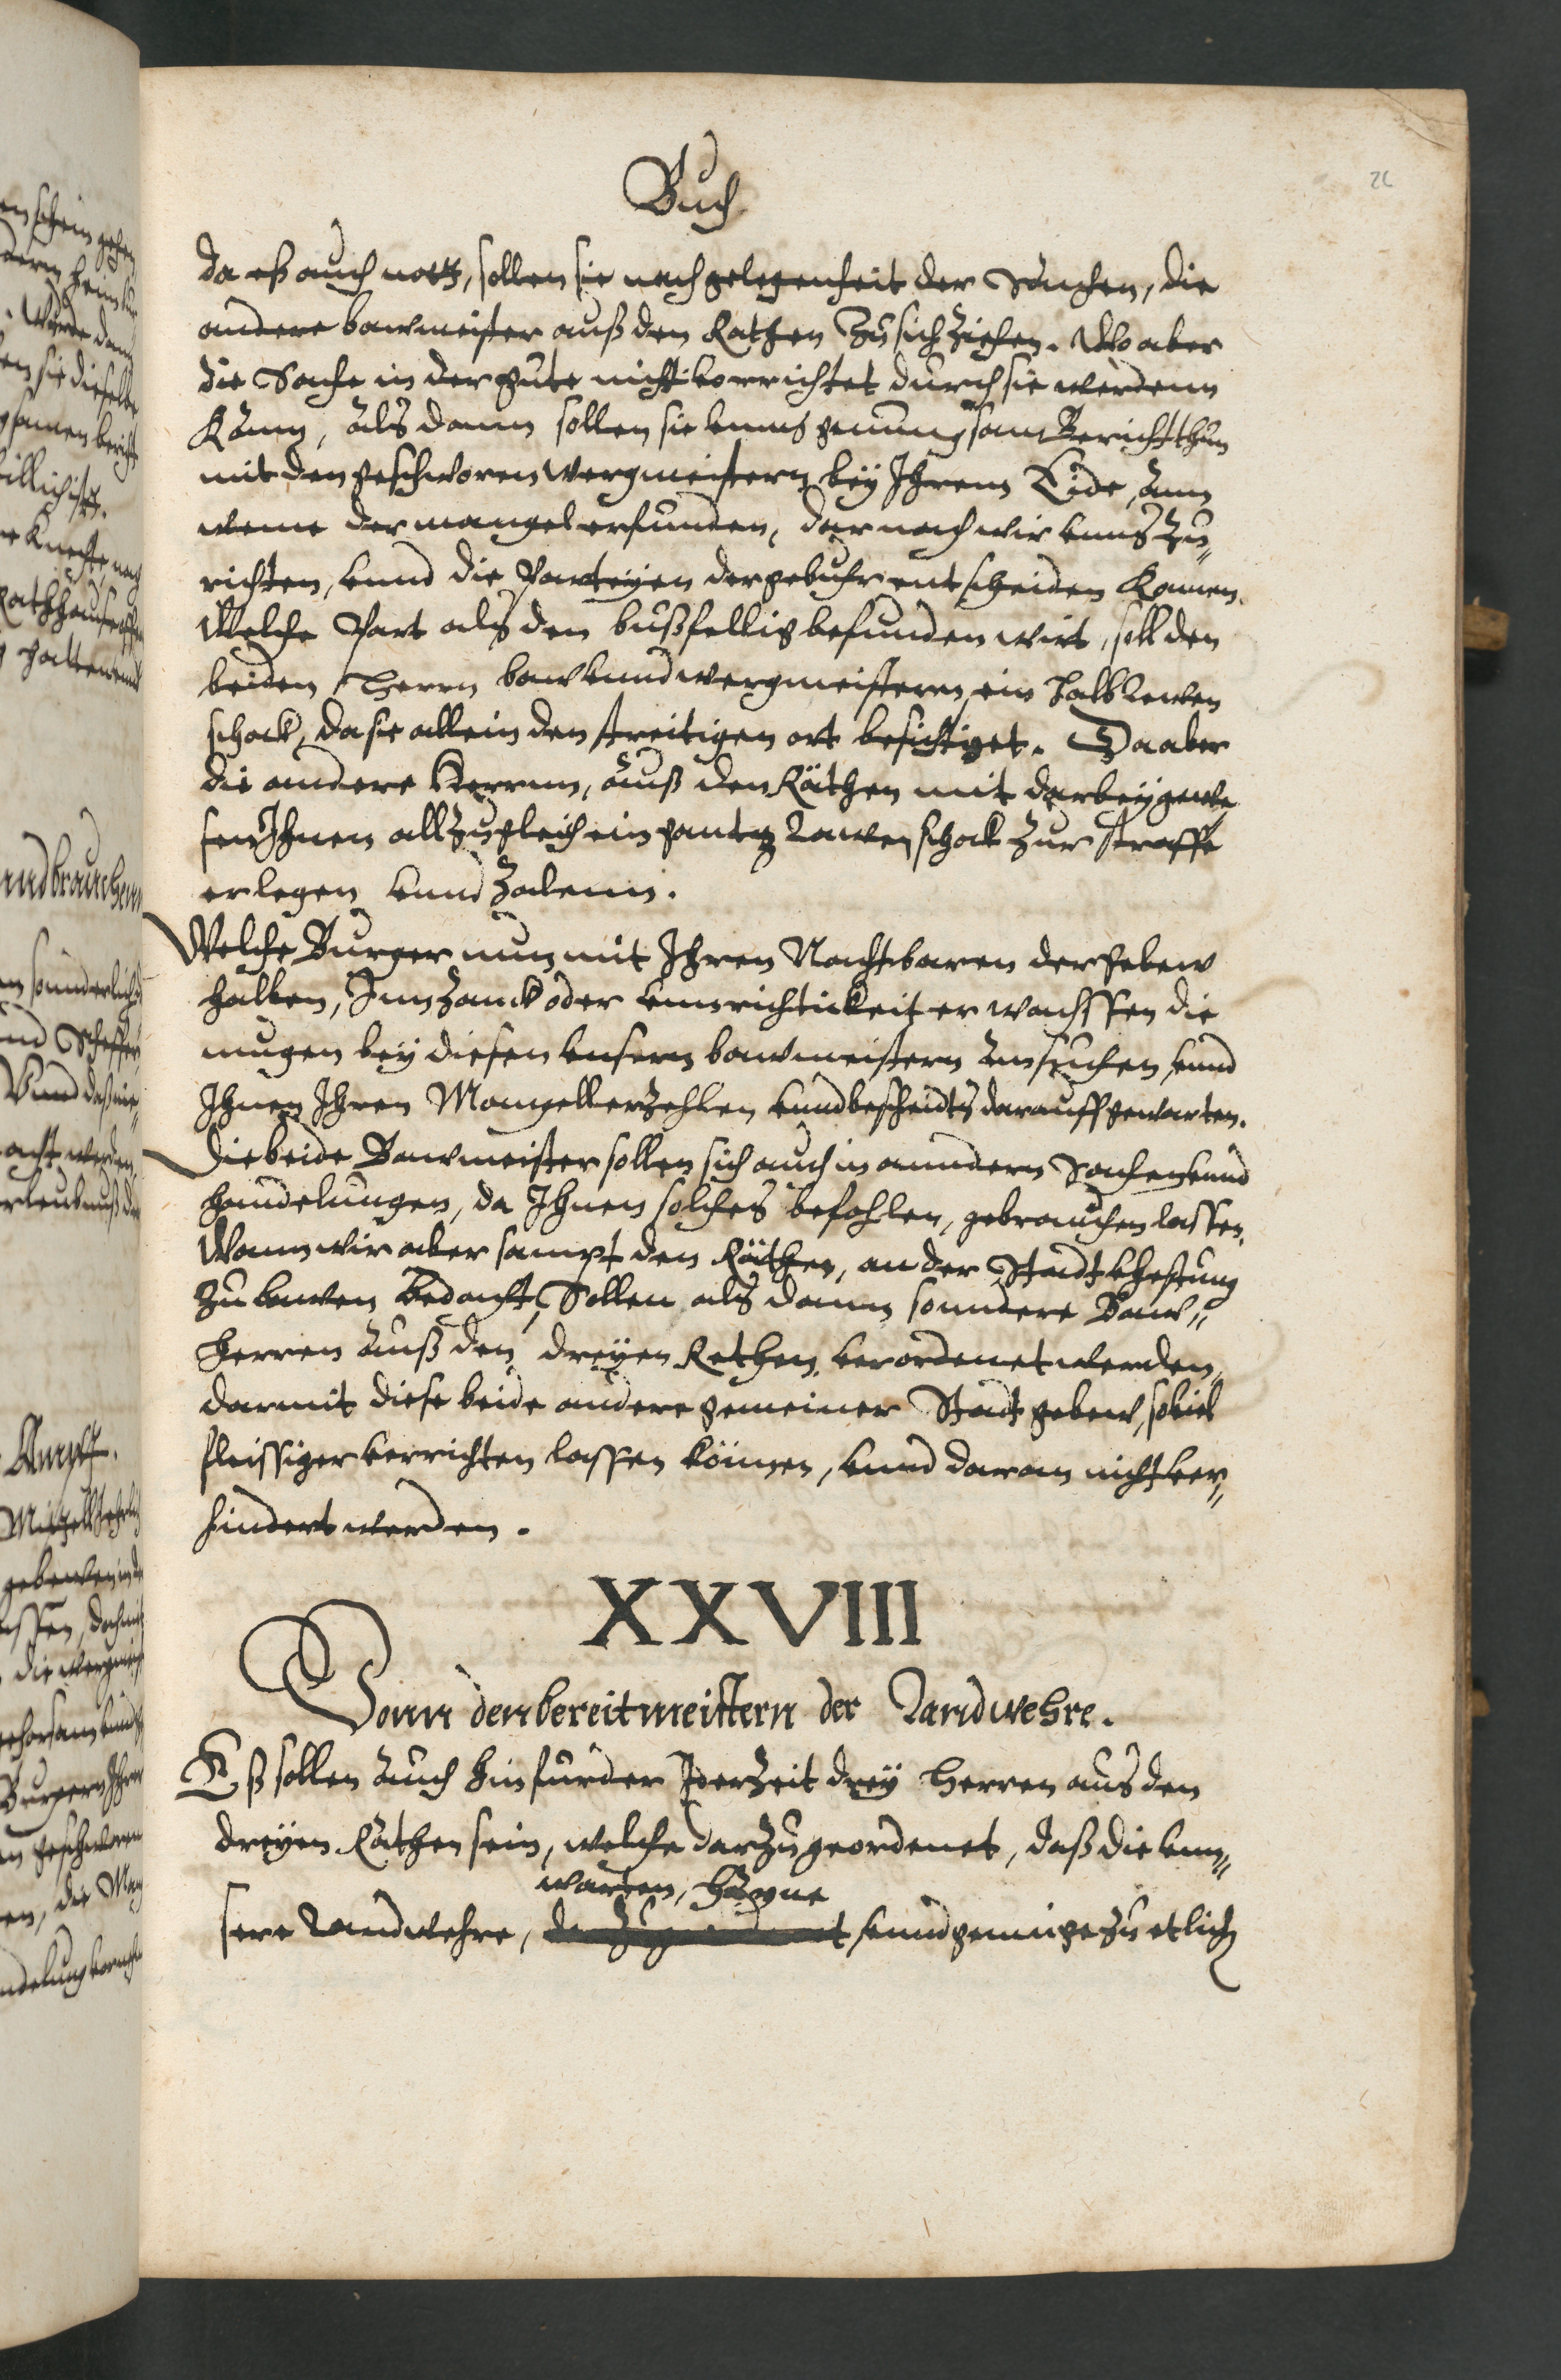 Buch
26
da eß auch noth, sollen sie nach gelegenheit der Sachen, die
andere bawmeister auß den Rathen zu sich ziehen. Wo aber
die Sache in der gute nicht vorrichtet durch sie werdenn
Kann, als dann sollen sie vnns genungsam Bericht thun
mit den geschworen wergmeistern bey Ihrem Eide, ann
weme der mangel erfunden, darnach wir vnns zu„
richten, vnnd die Parteyen der gebuhr entscheiden Konnen.
Welche Part als den bußfellig befunden wirt, soll den
beiden Herrn baw vnnd wergmeistern ein halb Lewen
schock, da sie allein den streitigen ort besichtiget. Da aber
die andere Herrnn, auß den Räthen mit darbey gewe„
sen Ihnen allzugleich ein gantz Lawen schock zur straffe
erlegen vnnd zalenn.
Welche Burger nun mit Ihren Nachtbaren der gebew
halben, Inn zanck oder vnnrichtickeit erwachssen die
mugen bey diesen vnsern bawmeistern ansuchen, vnnd
Ihnen Ihren Mangell erzehlen vnnd bescheidts darauff gewarten.
Die beide Bawmeister sollen sich auch in anndern Sachen vnnd
handelungen, da Ihnen solches befohlen, gebrauchen lassen.
Wann wir aber sampt den Räthen, an der Stadt vhestung
zu bawen bedacht, Sollen als dann sonndere Baw„
herren auß den dreyen Rethen verordenet werden,
darmit diese beide andere gemeiner Stadt gebew, soviel
fleissiger verrichten lassen können, vnnd daran nicht ver„
hindert werden.
XXVIII
Vonn den bereitmeistern der Landwehre.
Eß sollen auch hinfurder Jderzeit drey Herren aus den
dreyen Räthen sein, welche darzu geordenet, daß die vnn„
warten, Hägne
sere Landwehre, vnnd gennge zu etlich